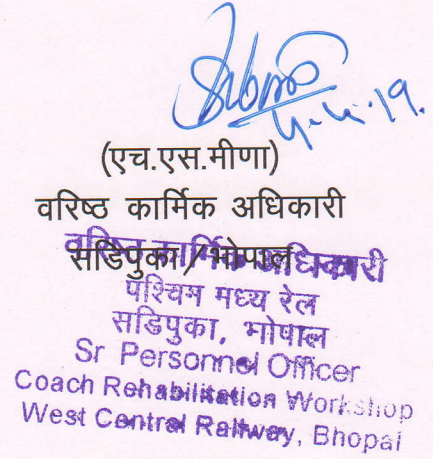 (एच.एस.मीणा)
वरिष्ठ कार्मिक अधिकारी
सडिपुका/भोपाल
वरिष्ठ कार्मिक अधिकारी
पश्चिम मध्य रेल
सडिपुका, भोपाल
Sr Personnel Officer
Coach Rehabilitation Workshop
West Central Railway, Bhopal